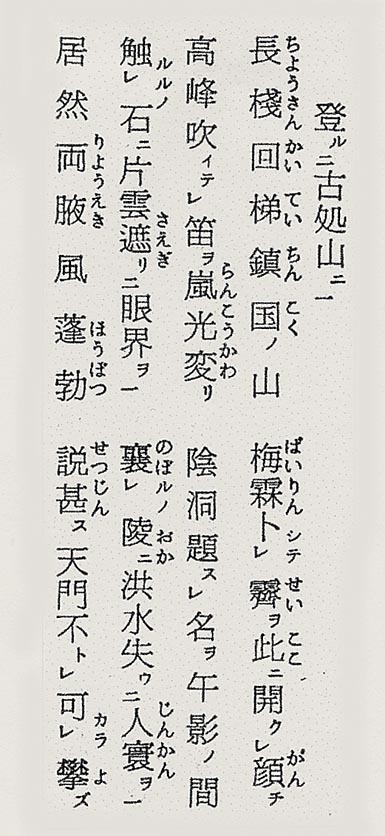 登ルニ古処山ニ一
ちようさん かい てい ちん こく
長棧回梯鎮国ノ山
ばいりん シテ せい ここ がん
梅霖卜レ霽ヲ此ニ開クレ顔チ
らんこうかわ
高峰吹ィテレ笛ヲ嵐光変リ
陰洞題スレ名ヲ午影ノ間
ルルノ さえぎ
触レ石ニ片雲遮リニ眼界ヲ一
のぼルノ おか じんかん
襄レ陵ニ洪水失ゥニ人寰ヲ一
りようえき ほうぼつ
居然両腋風蓬勃
せつじん カラ よ
説甚ス天門不トレ可レ攀ズ